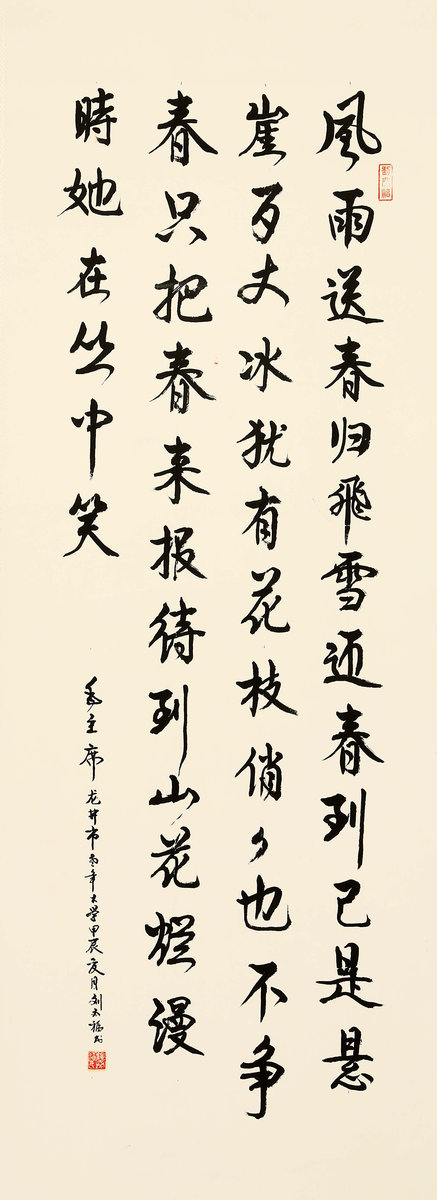 風雨送春归飛雪迎春到已是悬
崖百丈冰犹有花枝俏々也不争
春只把春来报待到山花爛漫
時她在丛中笑
毛主席 龙井市老年大学甲辰夏月刘太福书